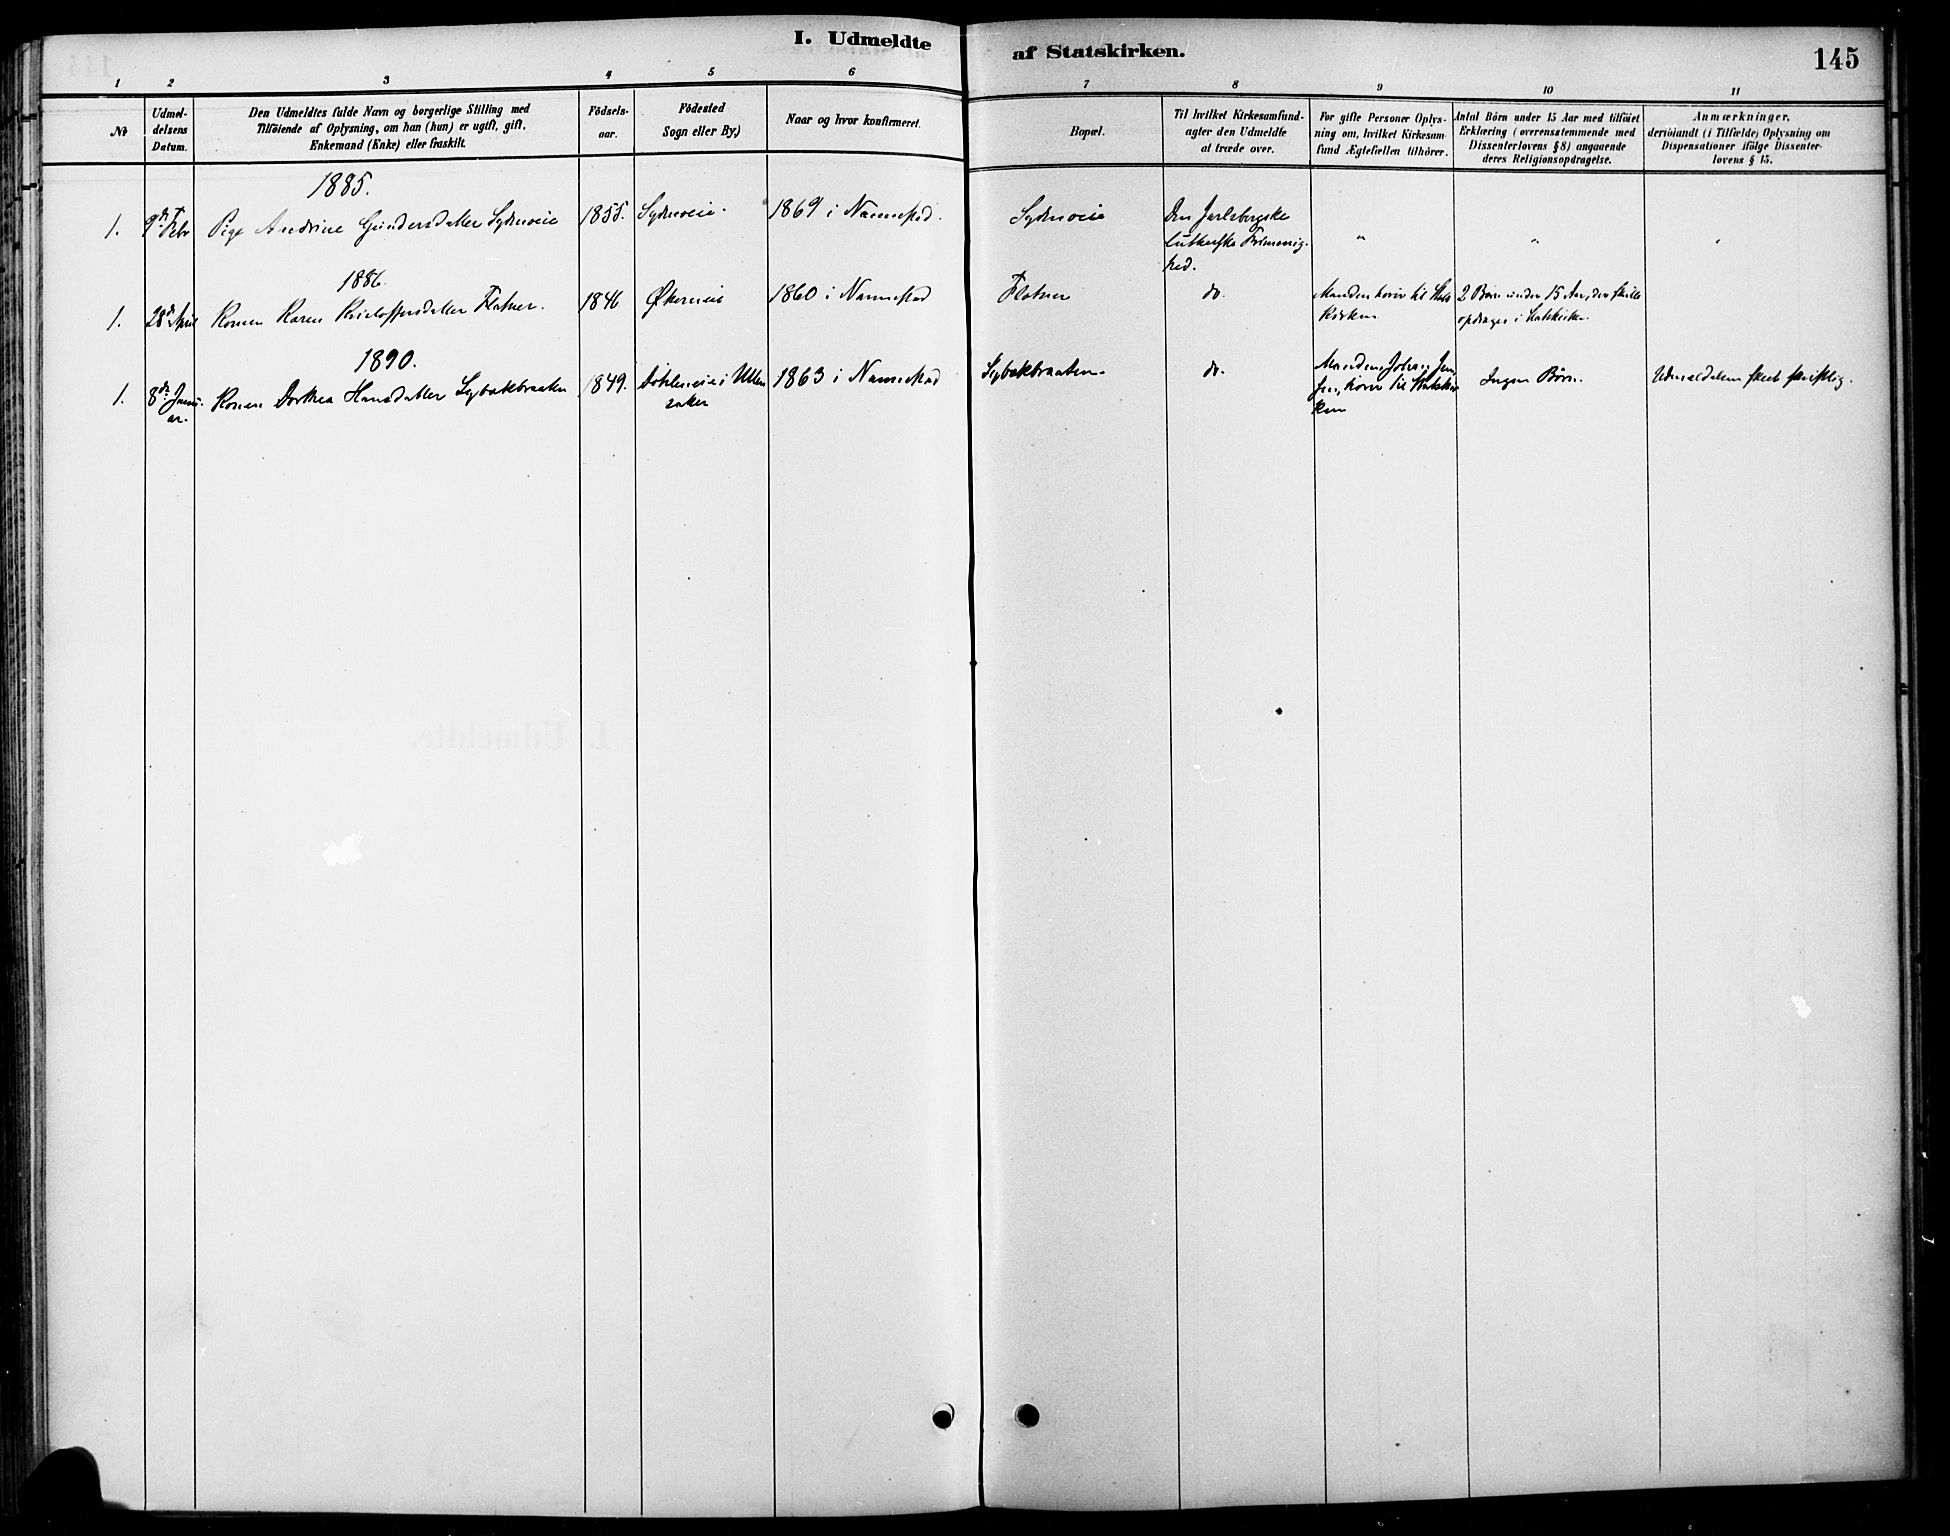 I. Udmeldte af Statskirken.
145
1 2 3 4 5 6 7 8 9 10 11
No
Udmel-
delsens
Datum.
Den Udmeldtes fulde Navn og borgerlige Stilling med
Tilföiende af Oplysning, om han (hun) er ugift, gift,
Enkemand (Enke) eller fraskilt.
Födsels-
aar.
Födested
Sogn eller By.)
Naar og hvor konfirmeret.
Bopæl.
Til hvilket Kirkesamfund-
agter den Udmeldte
at træde over.
For gifte Personer Oplys-
ning om, hvilket Kirkesam-
fund Ægtefællen tilhörer.
Antal Börn under 15 Aar med tilföiet
Erklæring (overensstemmende med
Dissenterlovens § 8) angaaende
deres Religionsopdragelse.
Anmærkninger,
deriblandt (i Tilfælde) Oplysning om
Dispensationer ifölge Dissenter-
lovens § 15.
1885.
1.
9de Febr
Pige Andrine Gundersdatter Sydenveie
1855.
Sydenveie.
1869 i Nannestad.
Sydenveie
Den Jarlsbergske
lutherske Frimenig-
hed.
"
"
"
1886.
1.
28de April
Konen Karen Kristoffersdatter Flatner.
1846
Økerneie
1860 i Nannestad
Flatner
do.
Manden hører til Stats
kirken
2 Børn under 15 Aar, der skulle
opdrages i Statskirken.
1890.
1.
8de Janu-
ar.
Konen Dorthea Hansdatter Sybakbraaten
1849.
i Ullen
saker
1863 i Nannestad
Sybakbraaten.
do.
Manden, Johan Jen
sen, hører til Statskir
ken
Ingen Børn.
Udmeldelsen skeet skriftlig.